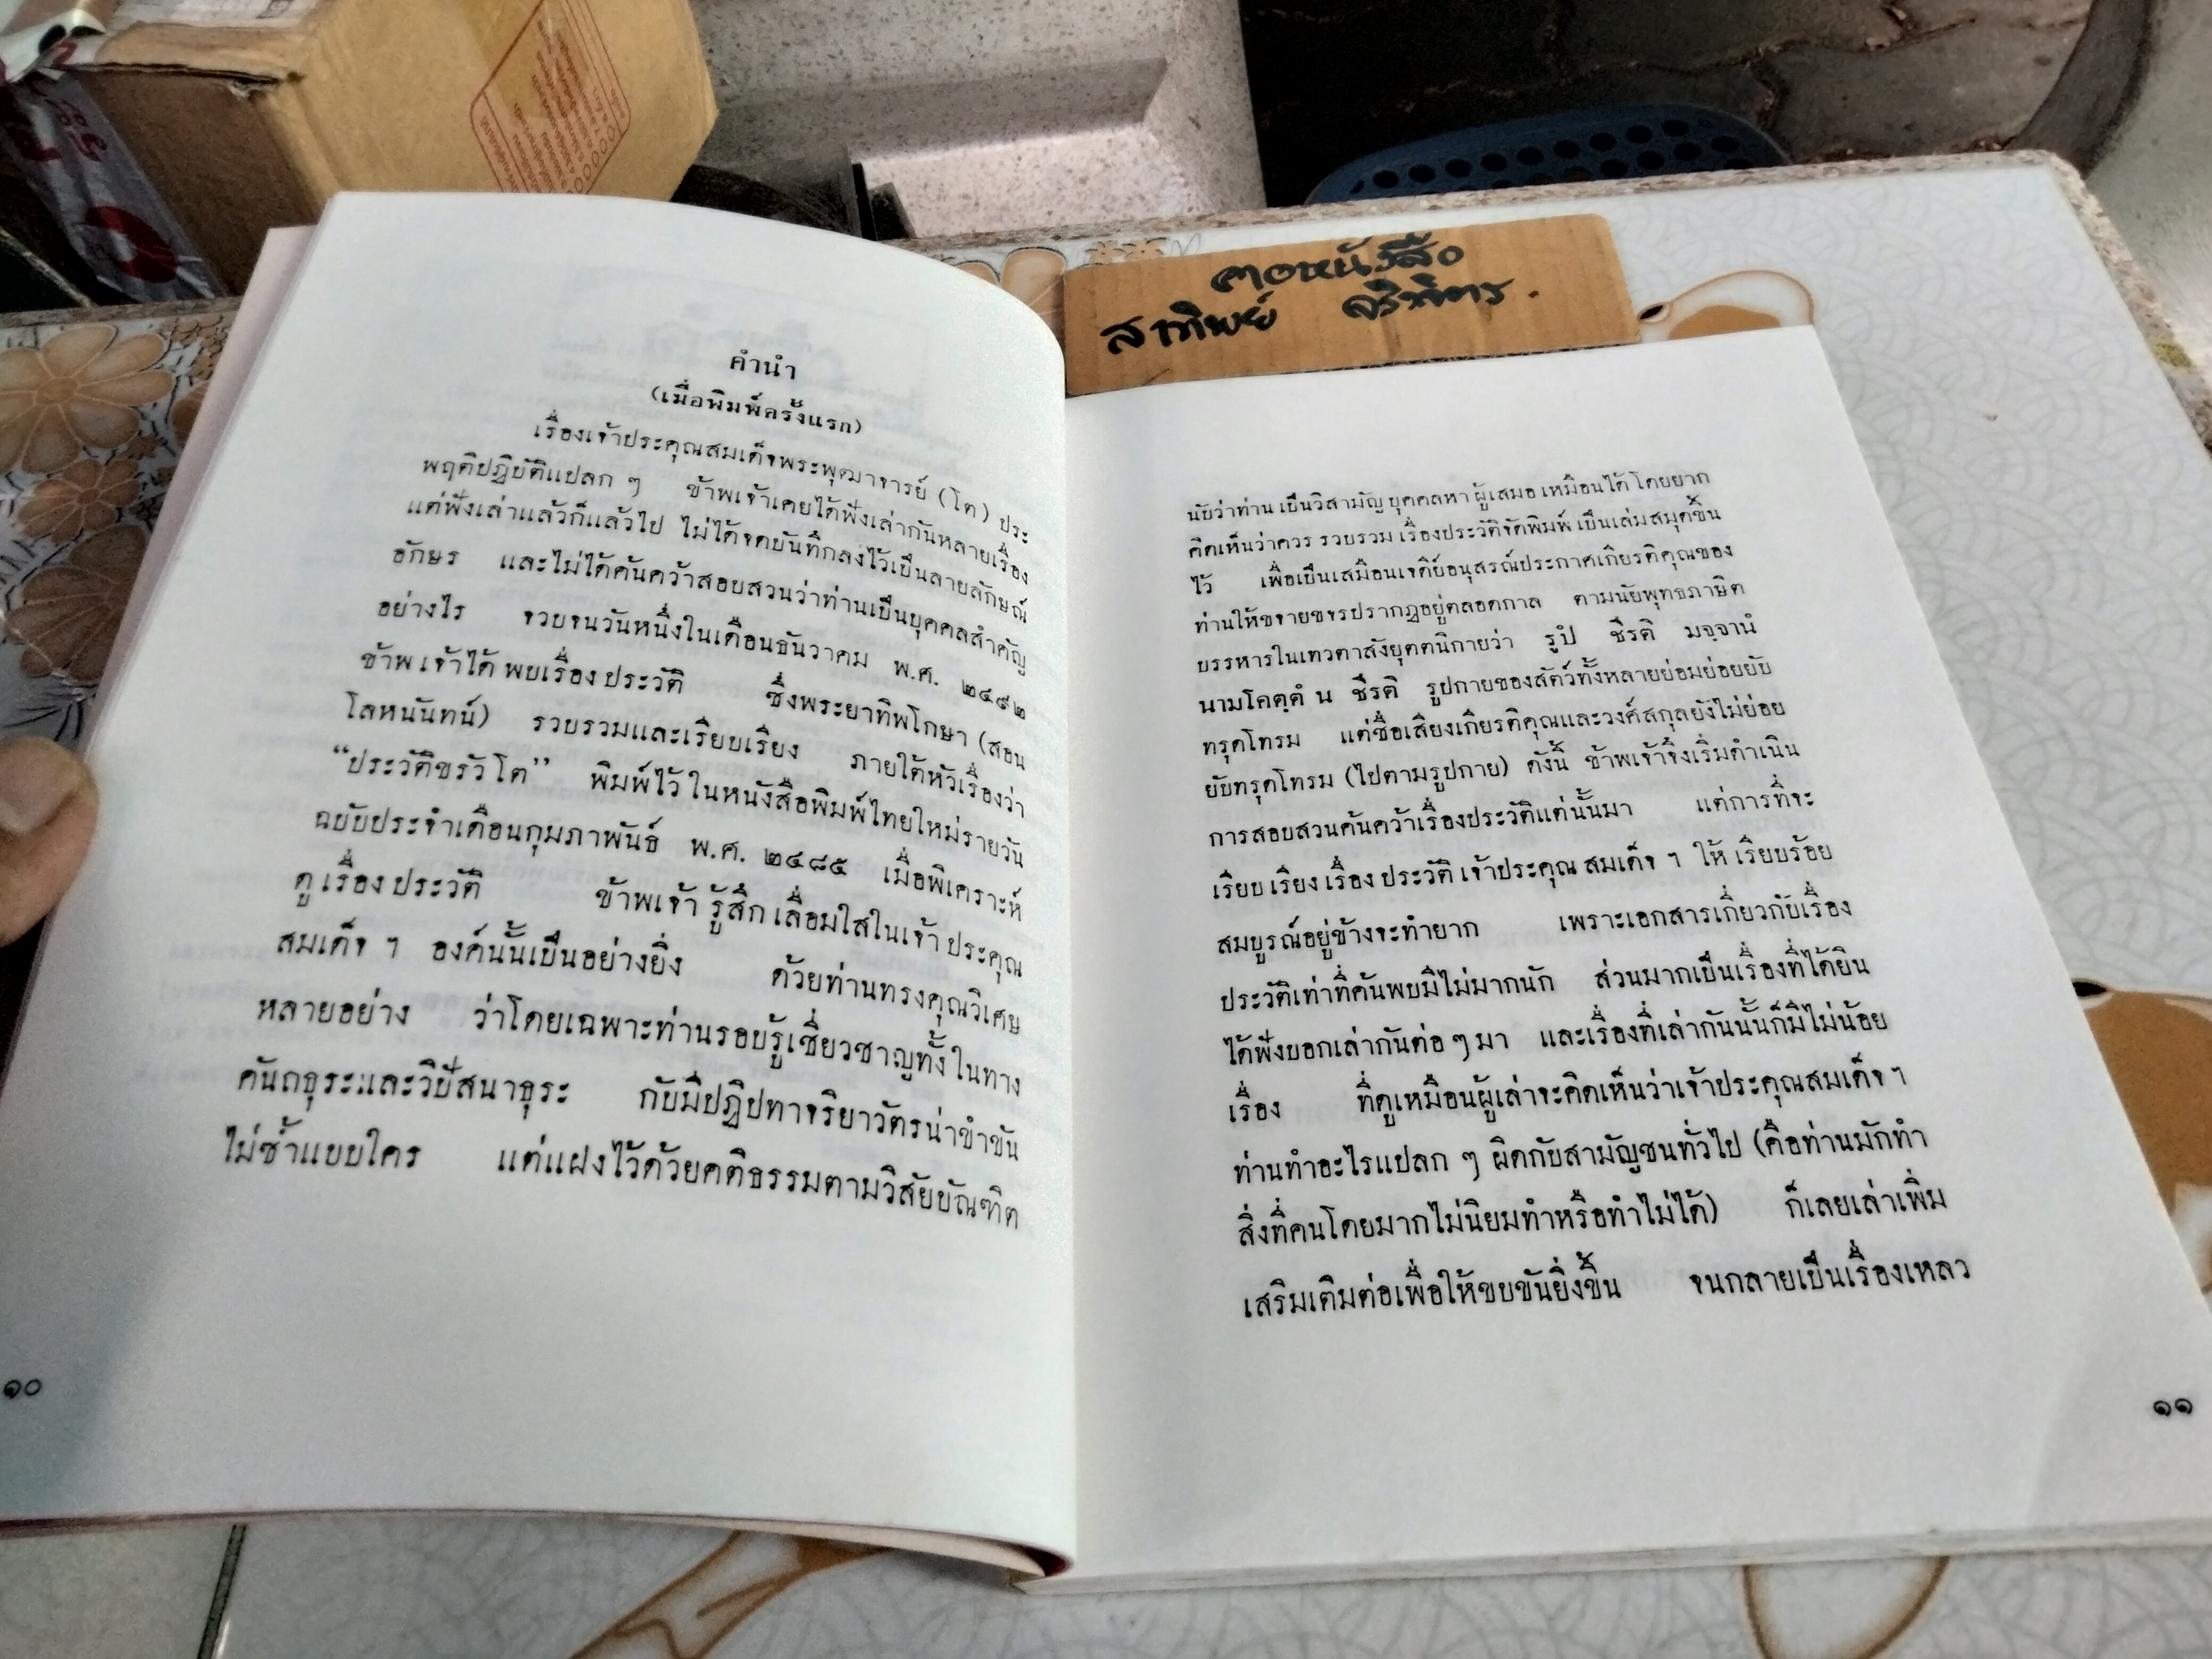 คอหนังสือ
สาทิพย์
คำนำ
(เมื่อพิมพ์ครั้งแรก)
เรื่องเจ้าประคุณสมเด็จพระพุฒาจารย์ (โต) ประ
พฤติปฏิบัติแปลก ๆ ข้าพเจ้าเคยได้ฟังเล่ากันหลายเรื่อง
แต่ฟังเล่าแล้วก็แล้วไป ไม่ได้จดบันทึกลงไว้เป็นลายลักษณ์
อักษร และไม่ได้ค้นคว้าสอบสวนว่าท่านเป็นบุคคลสำคัญ
อย่างไร จวบจนวันหนึ่งในเดือนธันวาคม พ.ศ. ๒๔๙๒
ข้าพเจ้าได้พบเรื่องประวัติ ซึ่งพระยาทิพโกษา (สอน
โลหนันทน์) รวบรวมและเรียบเรียง ภายใต้หัวเรื่องว่า
“ประวัติขรัวโต” พิมพ์ไว้ในหนังสือพิมพ์ไทยใหม่รายวัน
ฉบับประจำเดือนกุมภาพันธ์ พ.ศ. ๒๔๘๕ เมื่อพิเคราะห์
ดูเรื่องประวัติ ข้าพเจ้ารู้สึกเลื่อมใสในเจ้าประคุณ
สมเด็จ ฯ องค์นั้นเป็นอย่างยิ่ง ด้วยท่านทรงคุณวิเศษ
หลายอย่าง ว่าโดยเฉพาะท่านรอบรู้เชี่ยวชาญทั้งในทาง
คันถธุระและวิปัสนาธุระ กับมีปฏิปทาจริยาวัตรน่าขำขัน
ไม่ซ้ำแบบใคร แต่แฝงไว้ด้วยคติธรรมตามวิสัยบัณฑิต
๑๐
นับว่าท่านเป็นวิสามัญบุคคลหาผู้เสมอเหมือนได้โดยยาก
คิดเห็นว่าควรรวบรวมเรื่องประวัติจัดพิมพ์เป็นเล่มสมุดขึ้น
ไว้ เพื่อเป็นเสมือนเจดีย์อนุสรณ์ประกาศเกียรติคุณของ
ท่านให้ขจายขจรปรากฏอยู่ตลอดกาล ตามนัยพุทธภาษิต
บรรหารในเทวตาสังยุตตนิกายว่า รูปํ ชีรติ มจฺจานํ
นามโคตฺตํ น ชีรติ รูปกายของสัตว์ทั้งหลายย่อมย่อยยับ
ทรุดโทรม แต่ชื่อเสียงเกียรติคุณและวงศ์สกุลยังไม่ย่อย
ยับทรุดโทรม (ไปตามรูปกาย) ดังนี้ ข้าพเจ้าจึงเริ่มดำเนิน
การสอบสวนค้นคว้าเรื่องประวัติแต่นั้นมา แต่การที่จะ
เรียบเรียงเรื่องประวัติเจ้าประคุณสมเด็จ ฯ ให้เรียบร้อย
สมบูรณ์อยู่ข้างจะทำยาก เพราะเอกสารเกี่ยวกับเรื่อง
ประวัติเท่าที่ค้นพบมีไม่มากนัก ส่วนมากเป็นเรื่องที่ได้ยิน
ได้ฟังบอกเล่ากันต่อ ๆ มา และเรื่องที่เล่ากันนั้นก็มีไม่น้อย
เรื่อง ที่ดูเหมือนผู้เล่าจะคิดเห็นว่าเจ้าประคุณสมเด็จ ฯ
ท่านทำอะไรแปลก ๆ ผิดกับสามัญชนทั่วไป (คือท่านมักทำ
สิ่งที่คนโดยมากไม่นิยมทำหรือทำไม่ได้) ก็เลยเล่าเพิ่ม
เสริมเติมต่อเพื่อให้ขบขันยิ่งขึ้น จนกลายเป็นเรื่องเหลว
๑๑